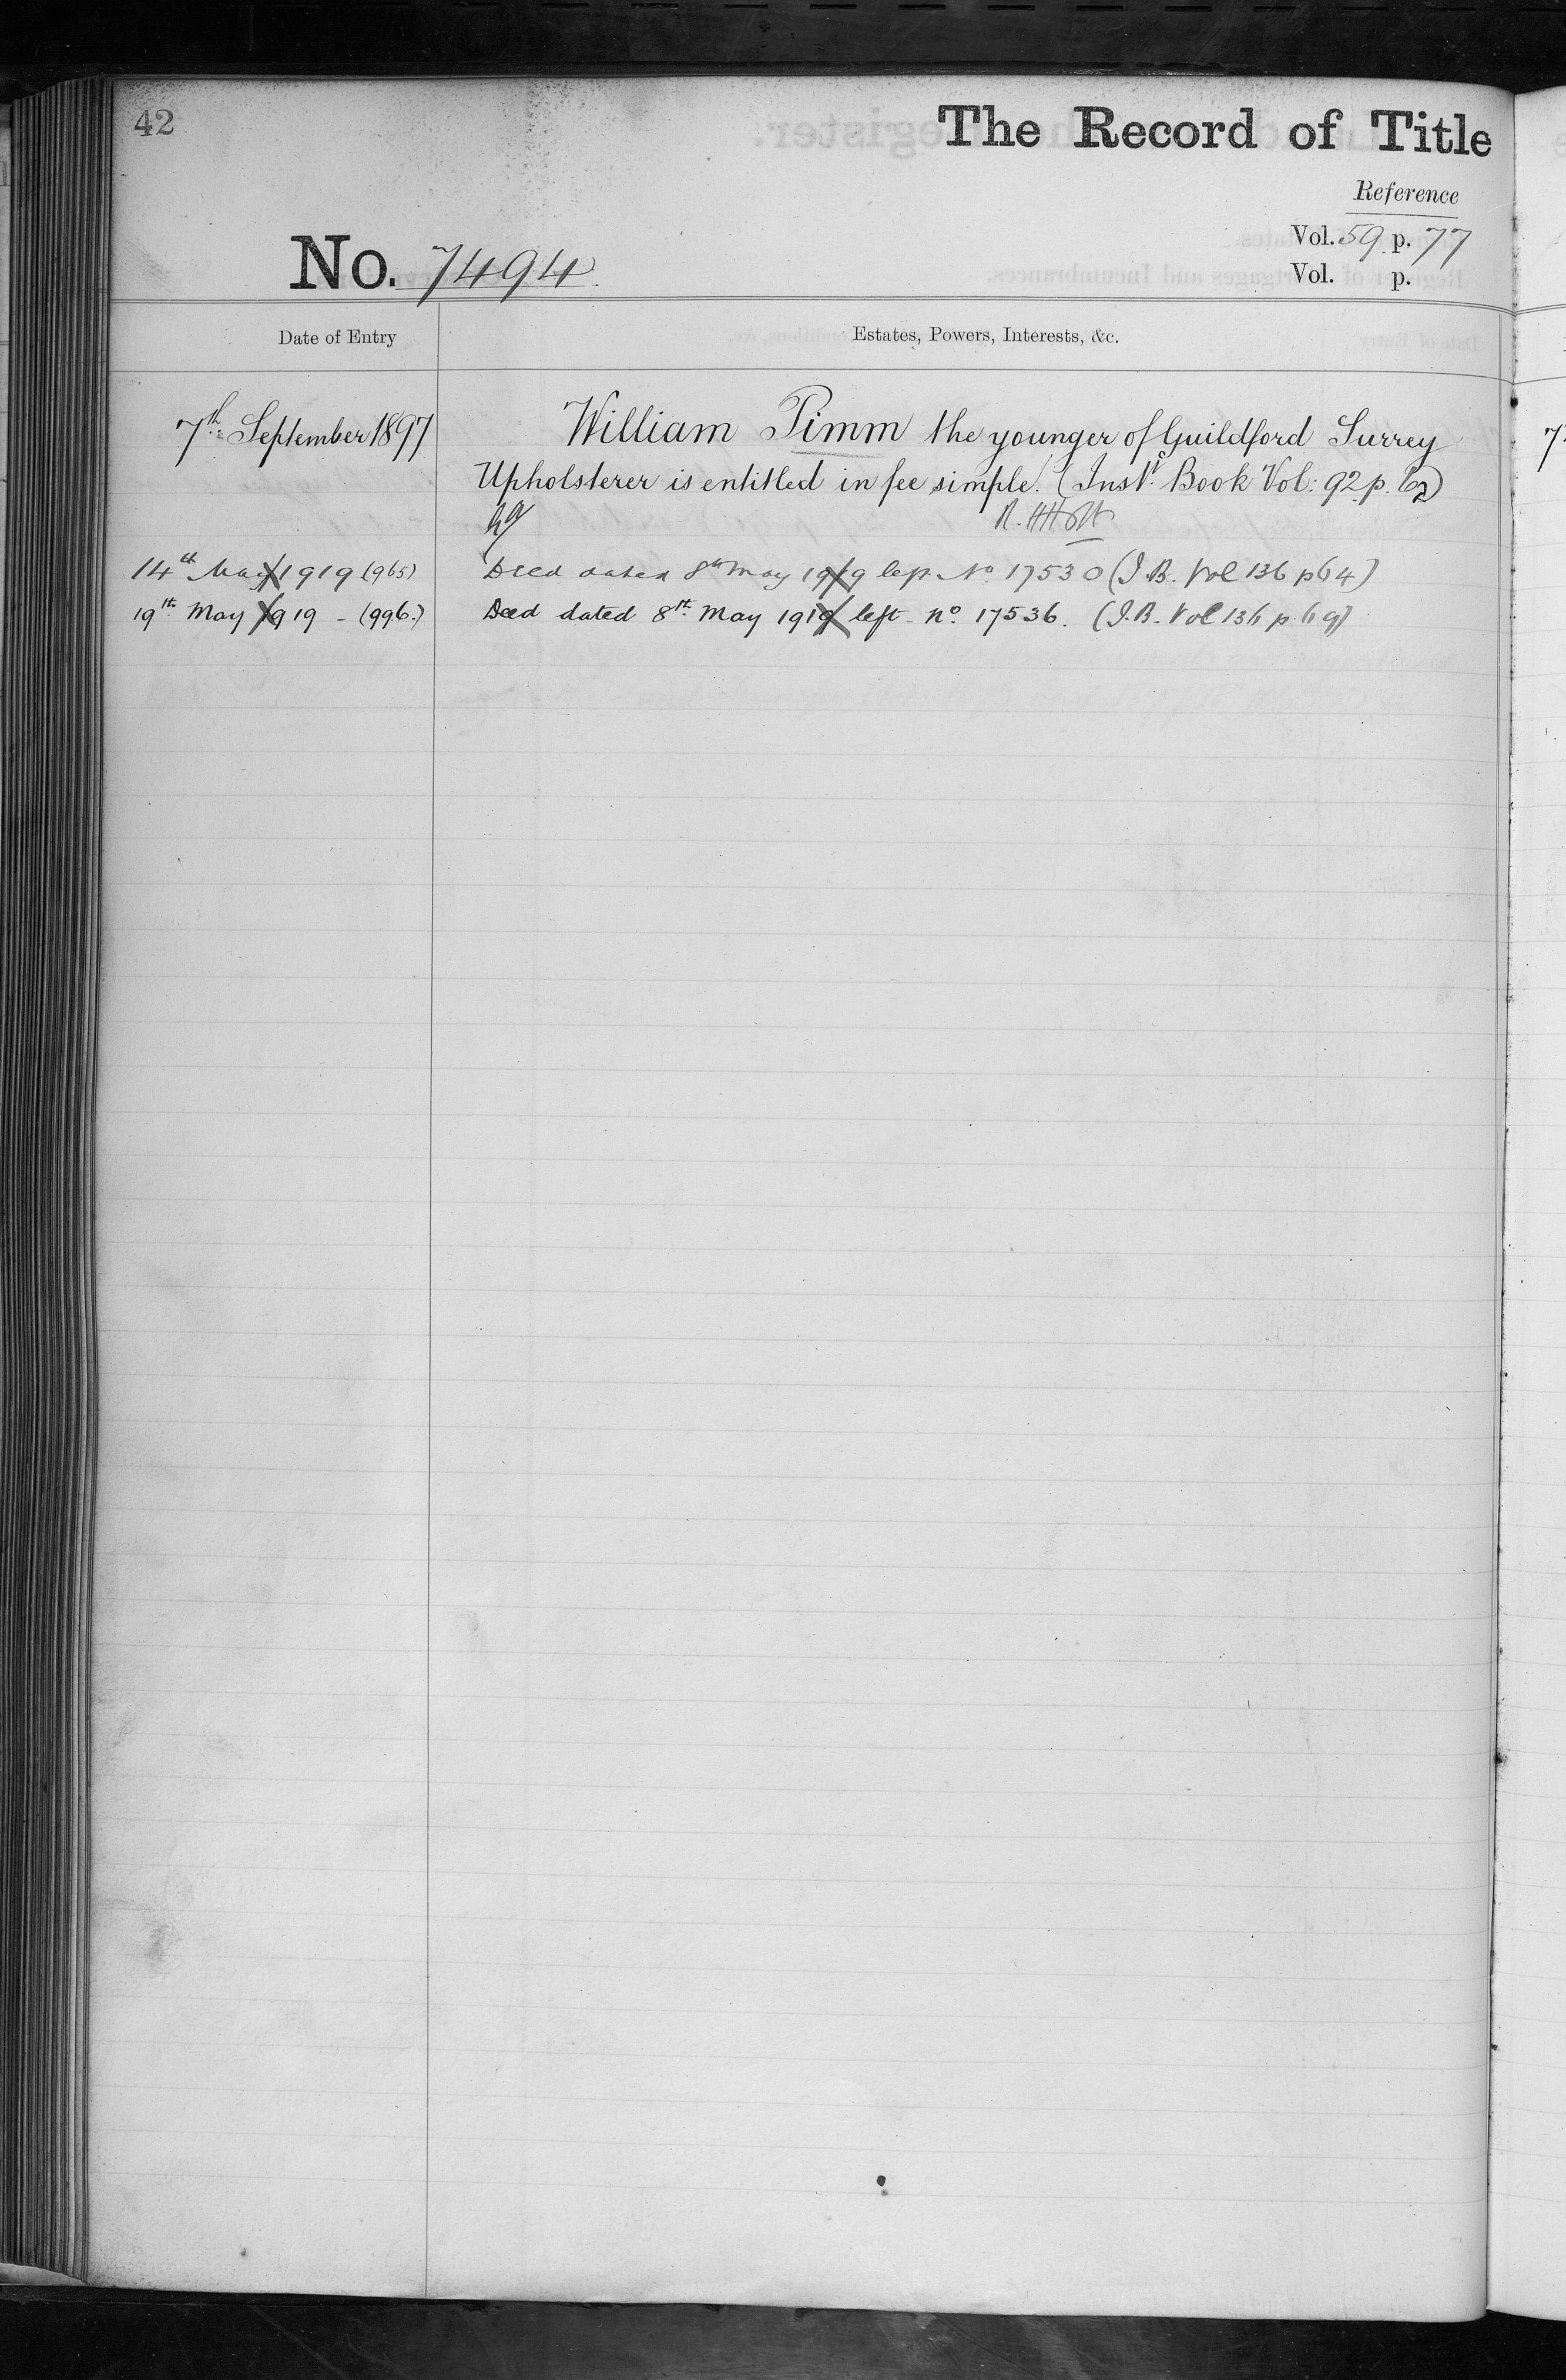 42
The Record of Title
Reference
Vol. 59 p. 77
No. 7494
Vol. p.
Date of Entry
Estates, Powers, Interests, &c.
7th September 1897 William Pimm the younger of Guildford Surrey
Upholsterer is entitled in fee simple. (Instt Book Vol: 92 p. 62)
14th May 1919 (965) Deed dated 8th May 1919 left No 17530 (I.B. Vol 136 p 64)
19th May 1919 - (996.) Deed dated 8th May 1919 left no 17536. (I.B. Vol 136 p. 69)